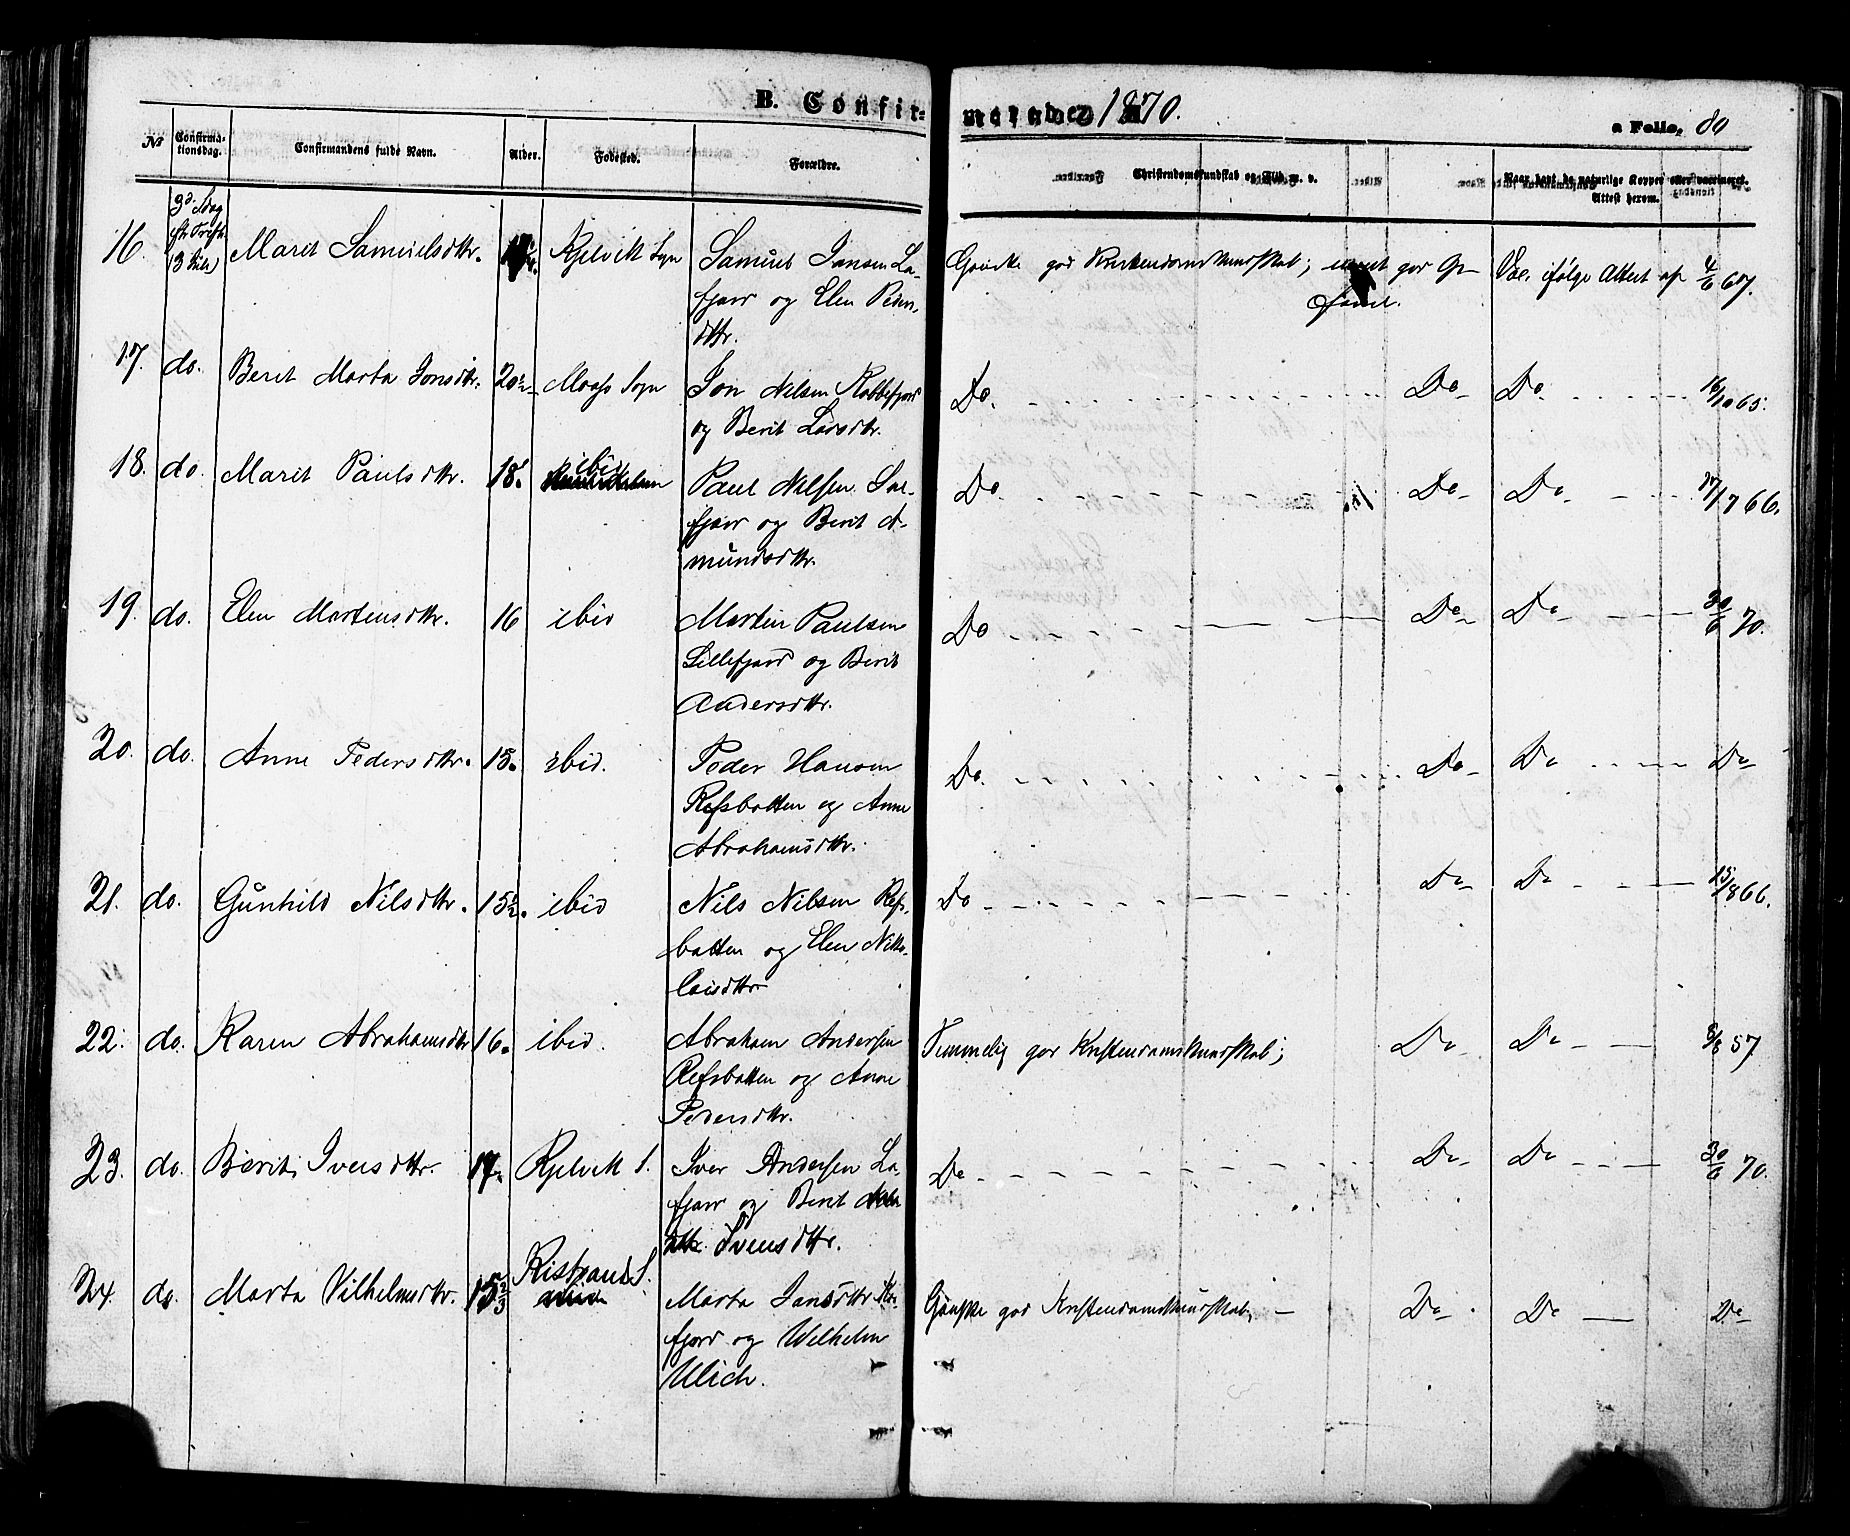 B. Confirmerede 1870.
a Folio, 80
No Confirmationsdag. Confirmandens fulde Navn. Alder. Fødested. Forældre. Christendomskundskab og Flid m. v. Naar havt de naturlige Kopper eller vaccineret. Attest herom.
16. 3d. Sdag Marit Samuelsdttr. Kjelvik Sogn Samuel Jansen La-
fjord og Elen Peders-
dttr.
god Kristendomskundskab; Vac. ifølge Attest af 4/6 67.
17. do. Berit Marta Jonsdttr. 20 Maasø Sogn Jon Nilsen Kobbefjord
og Berit Larsdttr.
Do. Do Do. 16/10 65.
18. do. Marit Paulsdttr. 18. ibid Paul Nilsen
fjord og Berit A-
mundsdttr.
Do. Do Do 17/7 66.
19. do. Elen Martensdttr. 16 ibid Martin Paulsen
Lillefjord og Berit
Andersdttr.
Do Do Do 30/6 70.
20. do. Anne Pedersdttr. 15. ibid. Peder Hansen
Refsbotten og Anne
Abrahamsdttr.
Do. Do Do Do
21. do. Gunhild Nilsdttr. 15 1/2. ibid Nils Nilsen Refs-
botten og Elen Niko-
laisdttr
Do Do Do 15/8 66.
22. do. Karen Abrahamsdttr 16. ibid. Abraham Andersen
Refsbotten og Anne
Pedersdttr.
Temmelig god Kristendomskundskab; Do Do 8/8 57
23. do. Berit Iversdttr. 17. Kjelvik S. Iver Andersen La-
fjord og Berit
Iversdttr.
Do Do Do 30/6 70.
24. do. Marta Vilhelmsdttr. 15 2/3 Kistrand S. Marta Jansdttr
fjord og Wilhelm
Ulich.
Ganske god Kristendomskundskab, Do Do Do